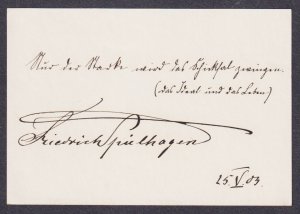 Nur der Starke wird das Schicksal zwingen.
(das Ideal und das Leben)
Friedrich Spielhagen
25 V 03.